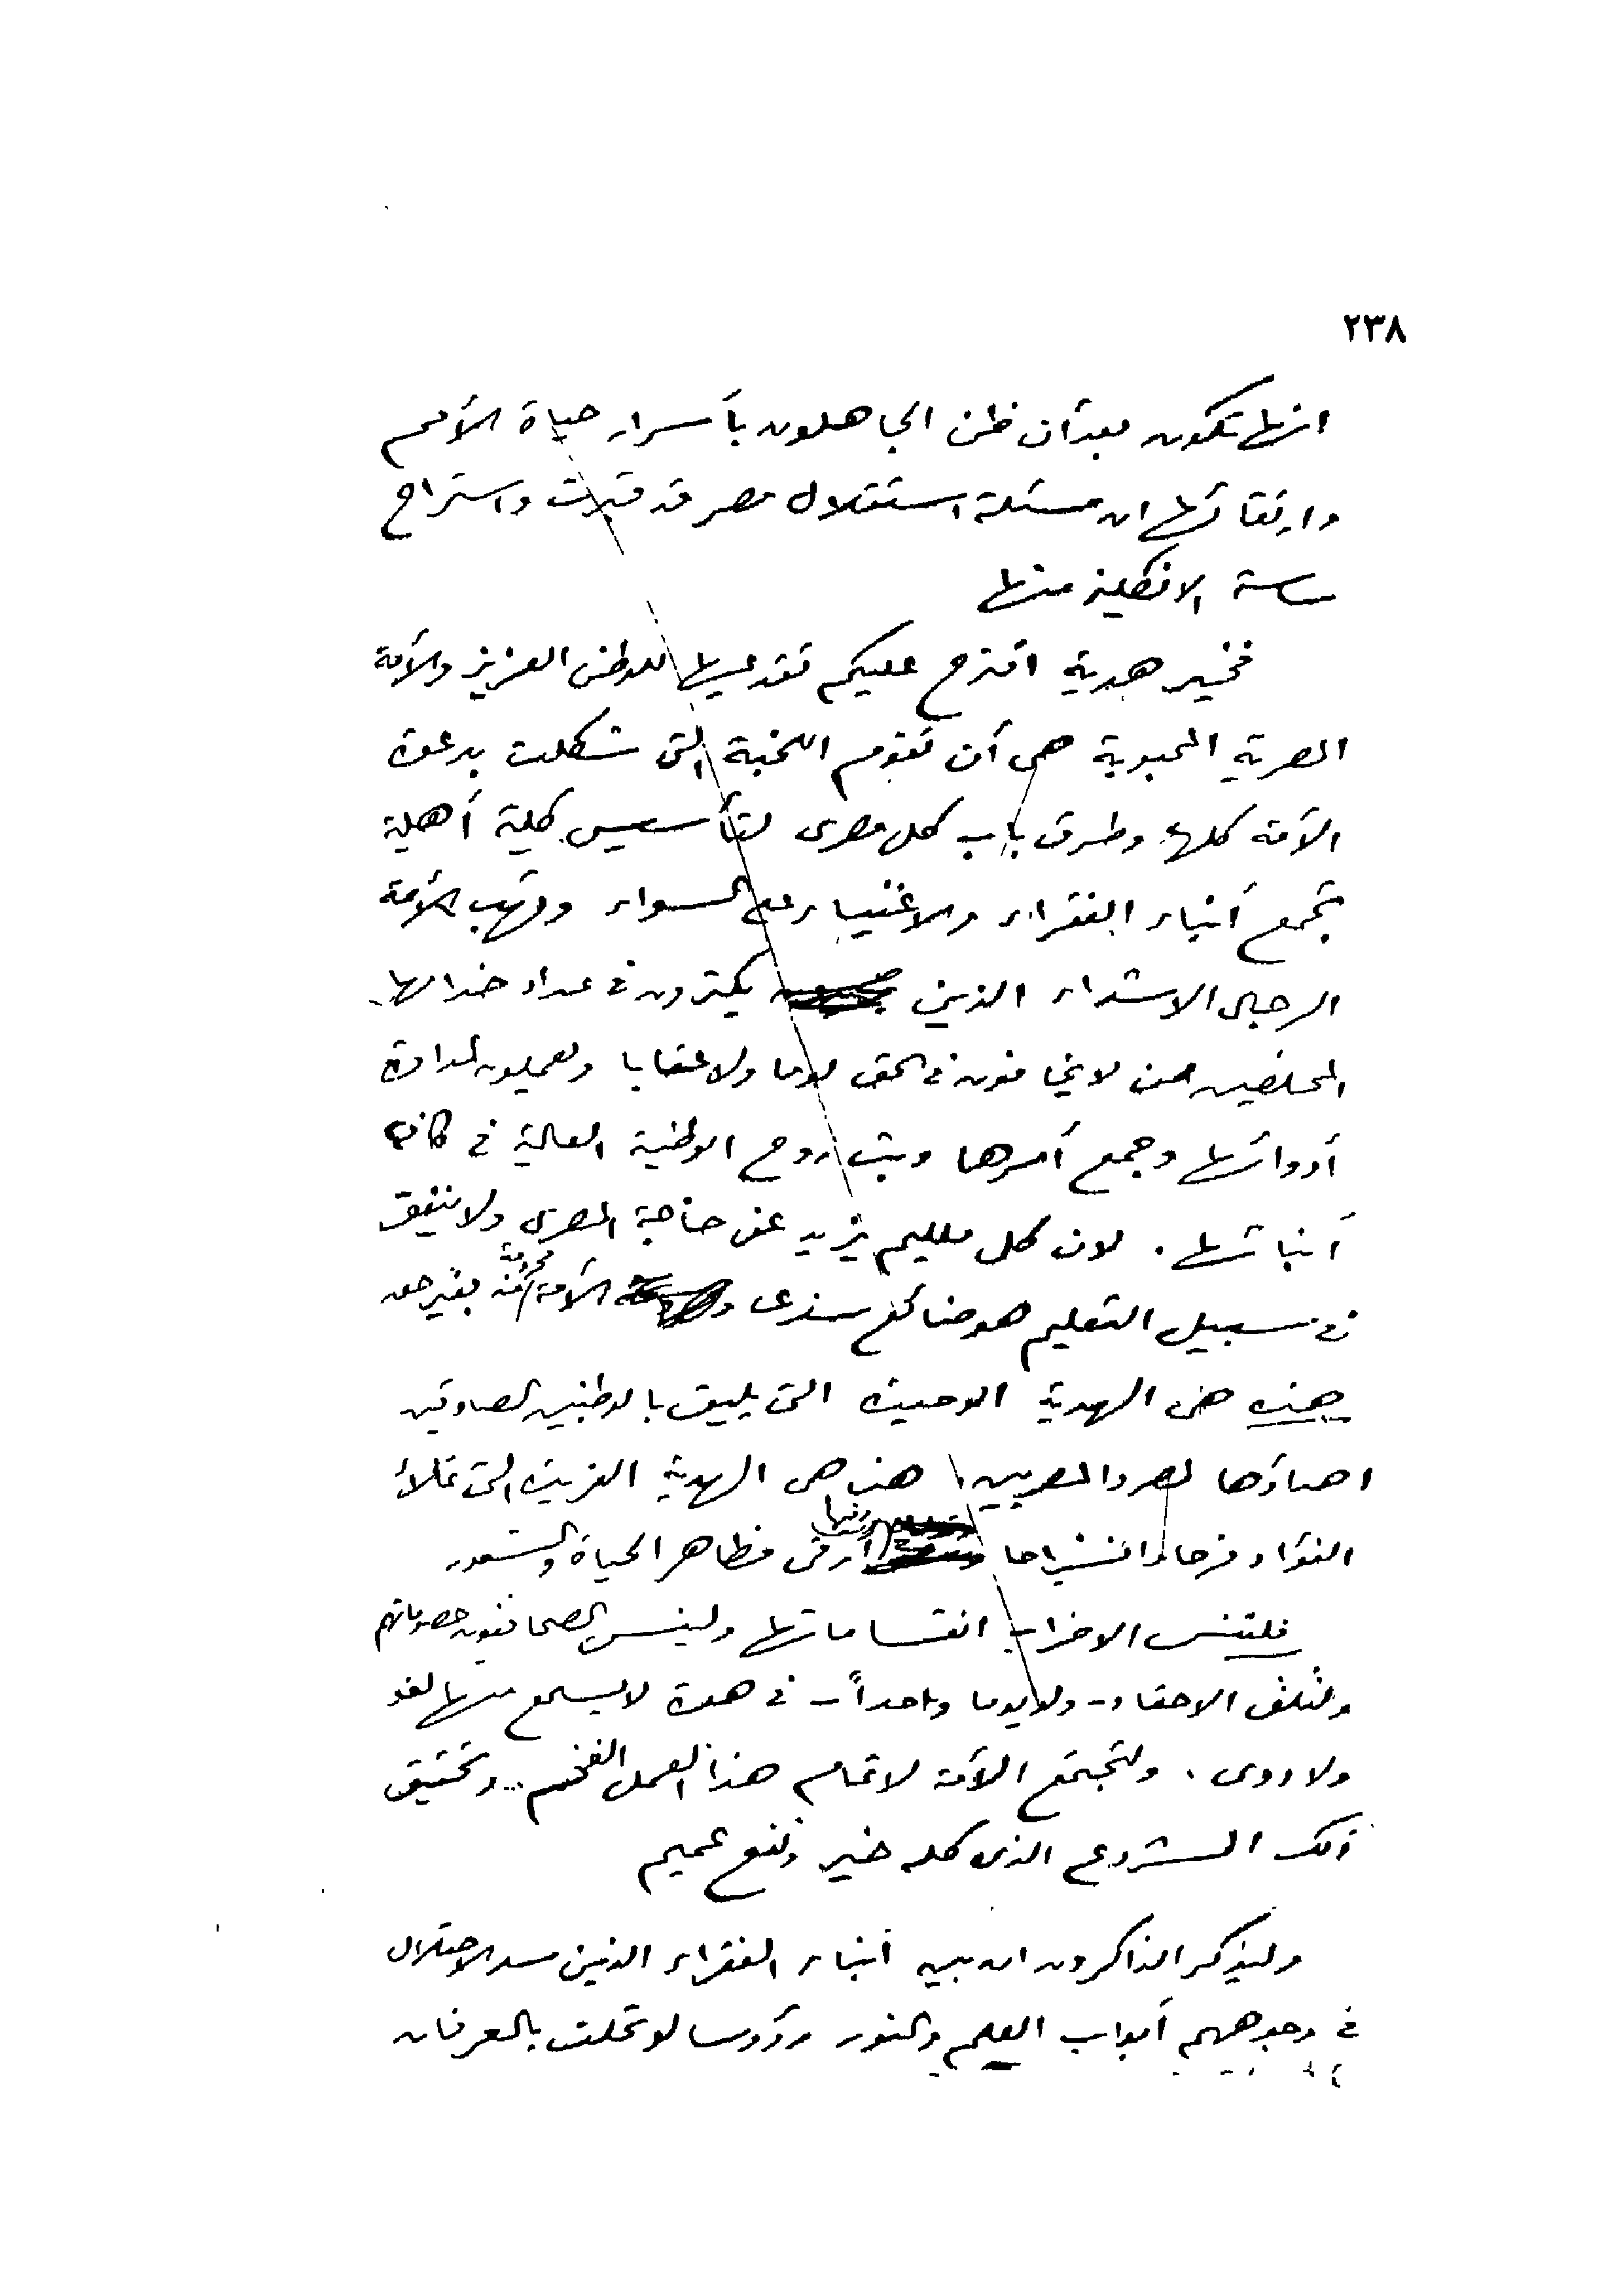 ٢٣٨
انها تكون بعد أن ظن الجاهلون بأسرار حياة الأمم
وارتقائها ان مسئلة استقلال مصر قد قبرت واستراح
ساسة الانكليز منها
فخير هدية اقترح عليكم تقديمها للوطن العزيز والأمة
المصرية المحبوبة هى أن تقوم اللجنة التى شكلت بدعوة
الأمة كلها وطرق باب كل مصرى لتأسيس كلية أهلية
تجمع أبناء الفقراء والاغنياء على السواء وتهب الأمة
الرجال الاشداء الذين يكثرون فى عداد خدامها
المخلصين ممن لا يخافون فى الحق لوما ولا عقابا ويعملون لمداواة
أدوائها وجمع أمرها وبث روح الوطنية العالية فى كافة
أبنائها . لان كل مليم يزيد عن حاجة المصرى ولا ينفق
فى سبيل التعليم هو ضائع سدى والأمة محرومة منه بغير حق
هذه هى الهدية الوحيدة التى يليق بالوطنيين الصادقين
اهداؤها لمصر والمصريين هذه هى الهدية الفريدة التى تملأ
الفؤاد فرحا وانشراحا وفيها أرقى مظاهر الحياة والشعور
فلتنس الاحزاب انقساماتها ولينس الصحافيون خصوماتهم
ولتلق الاحقاد - ولو يوما واحداً - فى هوة لا يسمع منها لغو
ولا دوى . ولتجتمع الأمة لاتمام هذا العمل الفخم .. وتحقيق
ذلك المشروع الذى كله خير ونفع عميم
وليذكر الذاكرون ان بين أبناء الفقراء الذين سد الاحتلال
فى وجوههم أبواب العلم والنور رؤوسا لو تحلت بالعرفان